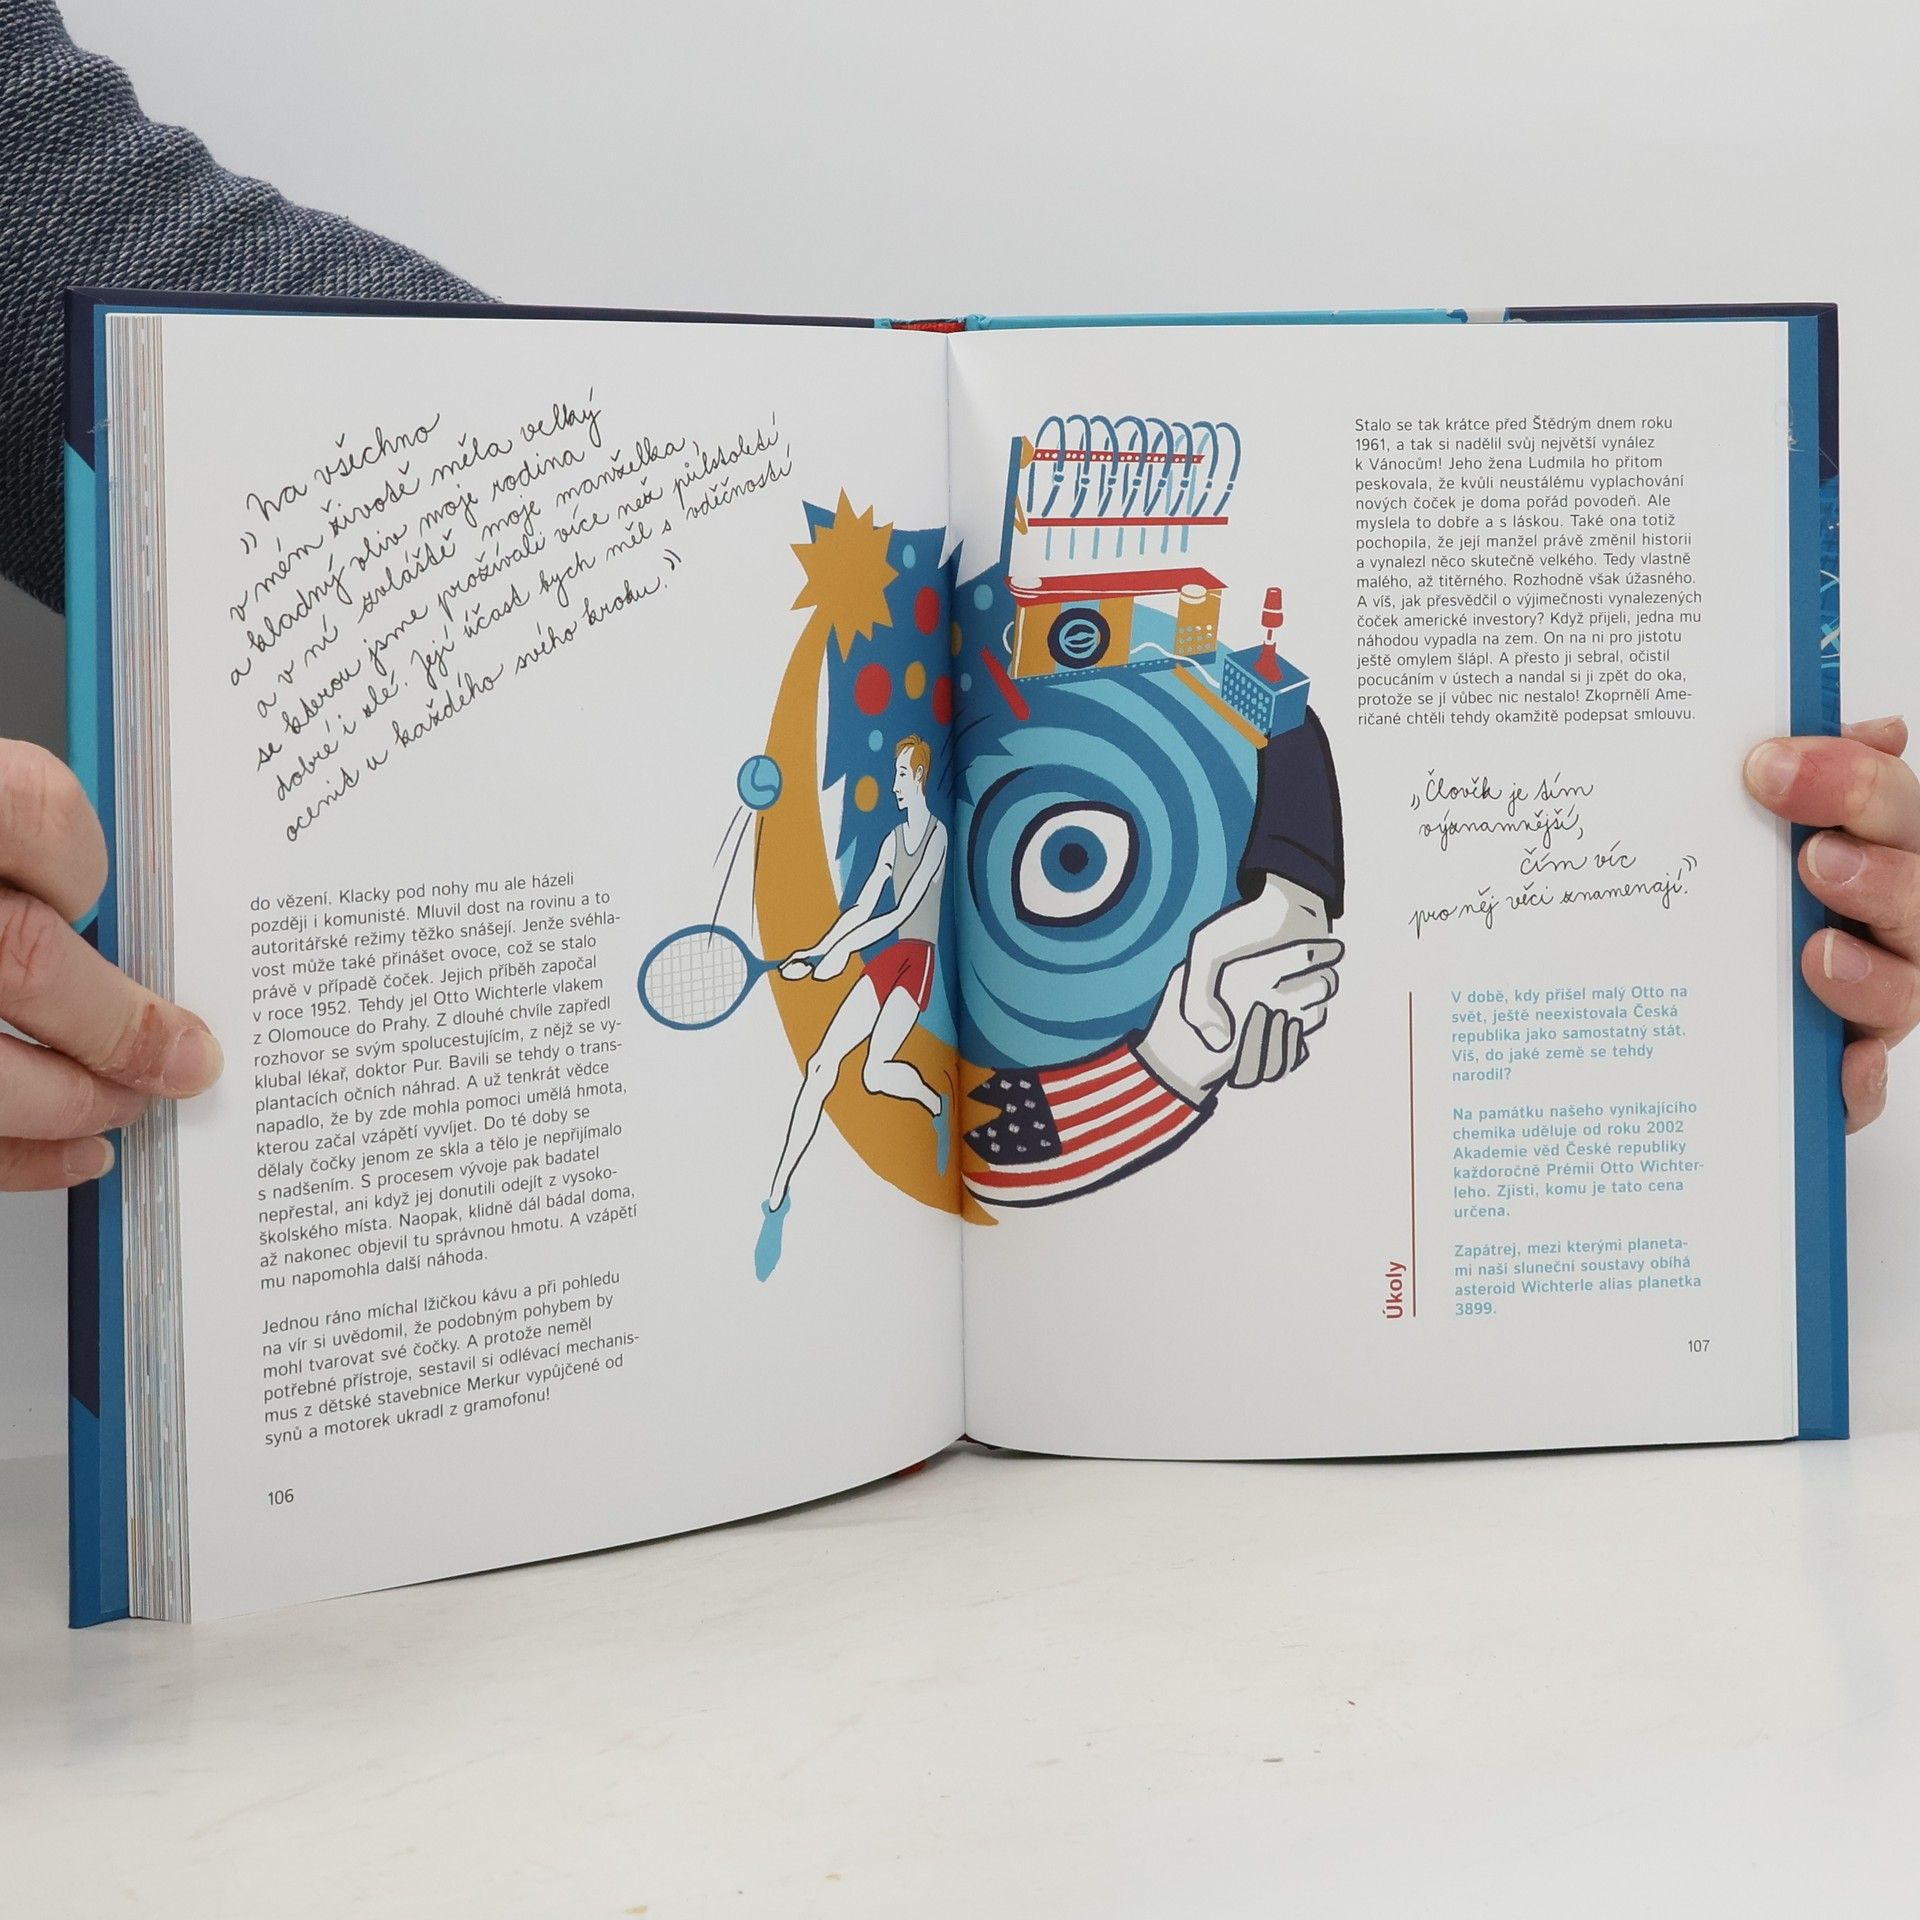 „Na všechno
v mém životě měla velký
a kladný vliv moje rodina
a v ní zvláště moje manželka,
se kterou jsme prožívali více než půlstoletí
dobré i zlé. Její účast bych měl s vděčností
ocenit u každého svého kroku.“
do vězení. Klacky pod nohy mu ale házeli
později i komunisté. Mluvil dost na rovinu a to
autoritářské režimy těžko snášejí. Jenže svéhla-
vost může také přinášet ovoce, což se stalo
právě v případě čoček. Jejich příběh započal
v roce 1952. Tehdy jel Otto Wichterle vlakem
z Olomouce do Prahy. Z dlouhé chvíle zapředl
rozhovor se svým spolucestujícím, z nějž se vy-
klubal lékař, doktor Pur. Bavili se tehdy o trans-
plantacích očních náhrad. A už tenkrát vědce
napadlo, že by zde mohla pomoci umělá hmota,
kterou začal vzápětí vyvíjet. Do té doby se
dělaly čočky jenom ze skla a tělo je nepřijímalo
s nadšením. S procesem vývoje pak badatel
nepřestal, ani když jej donutili odejít z vysoko-
školského místa. Naopak, klidně dál bádal doma,
až nakonec objevil tu správnou hmotu. A vzápětí
mu napomohla další náhoda.
Jednou ráno míchal lžičkou kávu a při pohledu
na vír si uvědomil, že podobným pohybem by
mohl tvarovat své čočky. A protože neměl
potřebné přístroje, sestavil si odlévací mechanis-
mus z dětské stavebnice Merkur vypůjčené od
synů a motorek ukradl z gramofonu!
106
Stalo se tak krátce před Štědrým dnem roku
1961, a tak si nadělil svůj největší vynález
k Vánocům! Jeho žena Ludmila ho přitom
peskovala, že kvůli neustálému vyplachování
nových čoček je doma pořád povodeň. Ale
myslela to dobře a s láskou. Také ona totiž
pochopila, že její manžel právě změnil historii
a vynalezl něco skutečně velkého. Tedy vlastně
malého, až titěrného. Rozhodně však úžasného.
A víš, jak přesvědčil o výjimečnosti vynalezených
čoček americké investory? Když přijeli, jedna mu
náhodou vypadla na zem. On na ni pro jistotu
ještě omylem šlápl. A přesto ji sebral, očistil
pocucáním v ústech a nandal si ji zpět do oka,
protože se jí vůbec nic nestalo! Zkoprnělí Ame-
ričané chtěli tehdy okamžitě podepsat smlouvu.
„Člověk je tím
významnější,
čím víc
pro něj věci znamenají.“
Úkoly
V době, kdy přišel malý Otto na
svět, ještě neexistovala Česká
republika jako samostatný stát.
Víš, do jaké země se tehdy
narodil?
Na památku našeho vynikajícího
chemika uděluje od roku 2002
Akademie věd České republiky
každoročně Prémii Otto Wichter-
leho. Zjisti, komu je tato cena
určena.
Zapátrej, mezi kterými planeta-
mi naší sluneční soustavy obíhá
asteroid Wichterle alias planetka
3899.
107